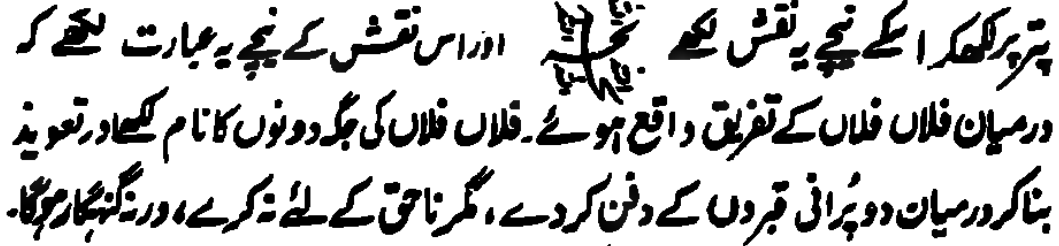 پتر پر لکھکر اسکے نیچے یہ نقش لکھے اور اس نقش کے نیچے یہ عبارت لکھے کہ
درمیان فلاں فلاں کے تفریق واقع ہوئے۔ فلاں فلاں کی جگہ دونوں کا نام لکھے اور تعویذ
بنا کر درمیان دو پُرانی قبروں کے دفن کر دے، مگر ناحق کے لئے نہ کرے، ورنہ گنہگار ہوگا۔